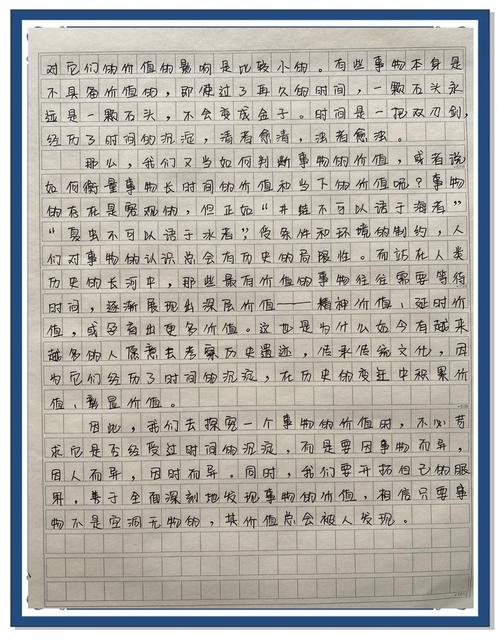 对它们的价值的影响是比较小的。有些事物本身是
不具备价值的，即使过了再久的时间，一颗石头永
远是一颗石头，不会变成金子。时间是一把双刃剑，
经历了时间的沉淀，清者愈清，浊者愈浊。
那么，我们又当如何判断事物的价值，或者说
如何衡量事物长时间的价值和当下的价值呢？事物
的存在是客观的，但正如“井蛙不可以语于海者”
“夏虫不可以语于冰者”，受条件和环境的制约，人
们对事物的认识总会有历史的局限性。而站在人类
历史的长河中，那些最有价值的事物往往需要等待
时间，逐渐展现出深层价值——精神价值、延时价
值，或孕育出更多价值。这也是为什么如今有越来
越多的人愿意去考察历史遗迹，传承传统文化，因
为它们经历了时间的沉淀，在历史的变迁中积累价
值、彰显价值。
因此，我们去探究一个事物的价值时，不必苛
求它是否经受过时间的沉淀，而是要因事物而异，
因人而异，因时而异。同时，我们要开拓自己的眼
界，善于全面深刻地发现事物的价值，相信只要事
物不是空洞无物的，其价值总会被人发现。